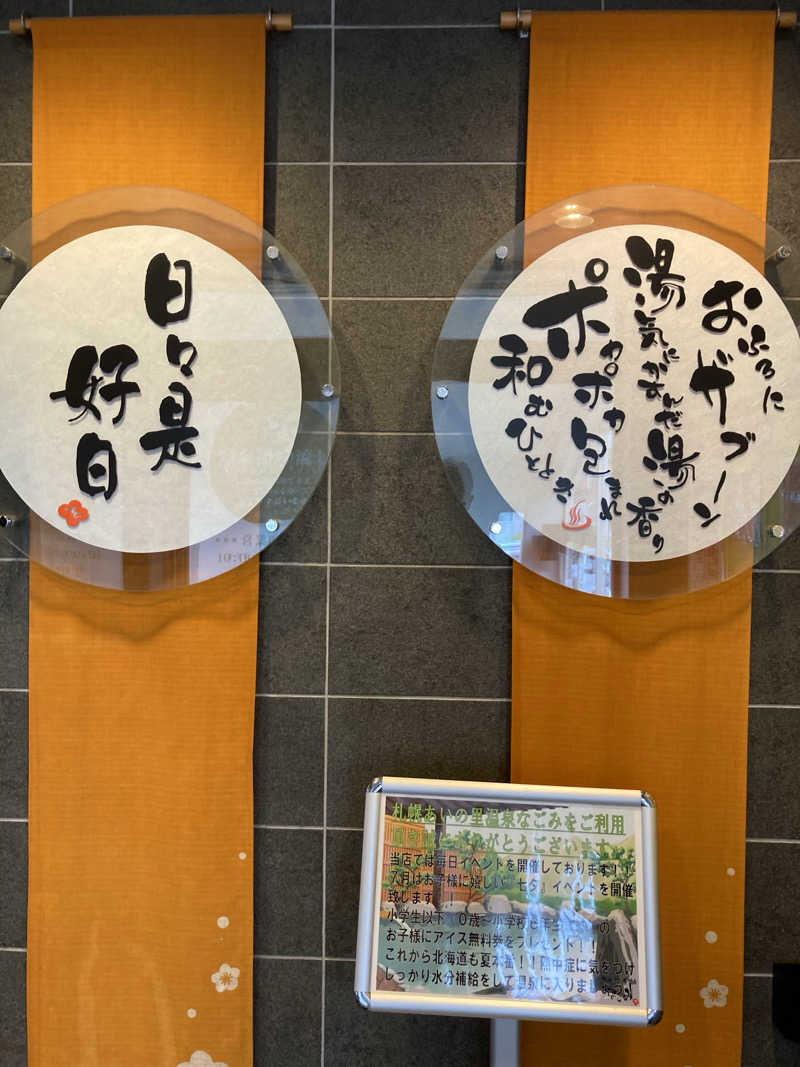 日々是
好日
おふろに
ザブーン
湯気にかすんだ湯の香り
ポカポカ包まれ
和むひととき
札幌あいの里温泉なごみをご利用
ありがとうございます
当店では毎日イベントを開催しております！！
７月はお子様に嬉しい『七夕』イベントを開催
致します
小学生以下 ０歳～小学校 の
お子様にアイス無料券をプレゼント！！
これから北海道も夏本番！！熱中症に気をつけ
しっかり水分補給をして温泉に入りましょう